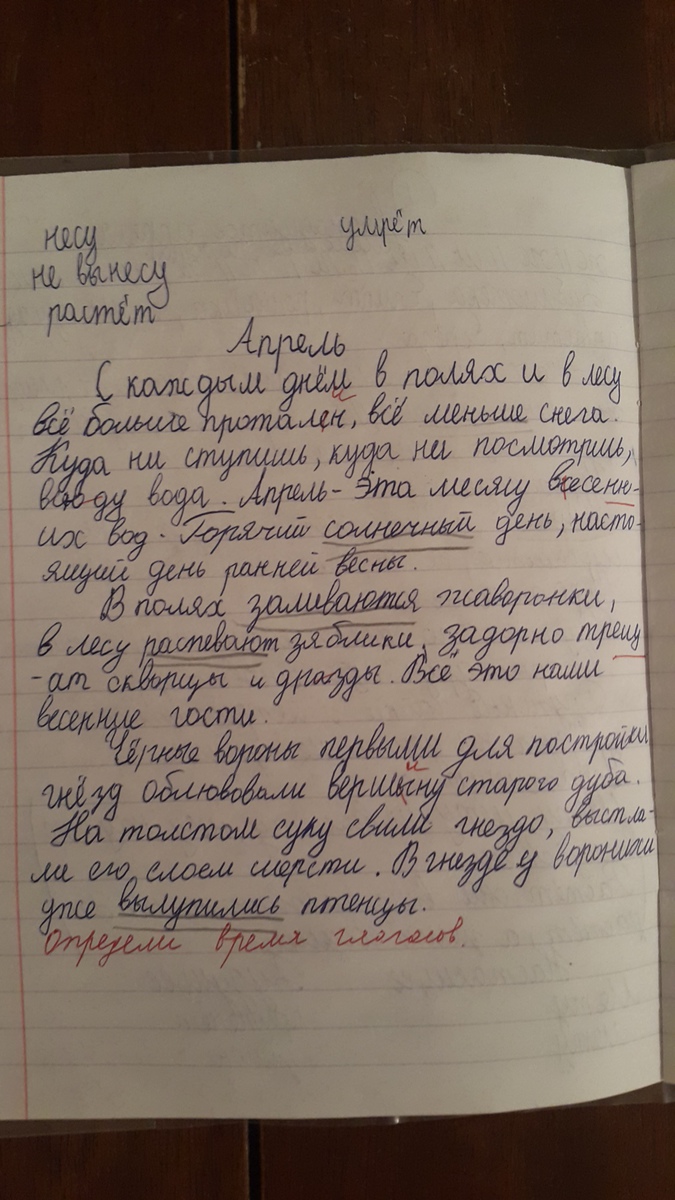 несу умрёт
не вынесу
растёт
Апрель
С каждым днём в полях и в лесу
всё больше проталин, всё меньше снега.
Куда ни ступишь, куда ни посмотришь,
всюду вода. Апрель - эта месяц весенн-
их вод. Горячий солнечный день, насто-
ящий день ранней весны.
В полях заливаются жаворонки,
в лесу распевают зяблики, задорно трещ
-ат скворцы и дразды. Всё это наши
весенние гости.
Чёрные вороны первыми для постройки
гнёзд облюбовали вершину старого дуба.
На толстом суку свили гнездо, выстла-
ли его слоем шерсти. В гнезде у воронихи
уже вылупились птенцы.
Определи время глаголов.